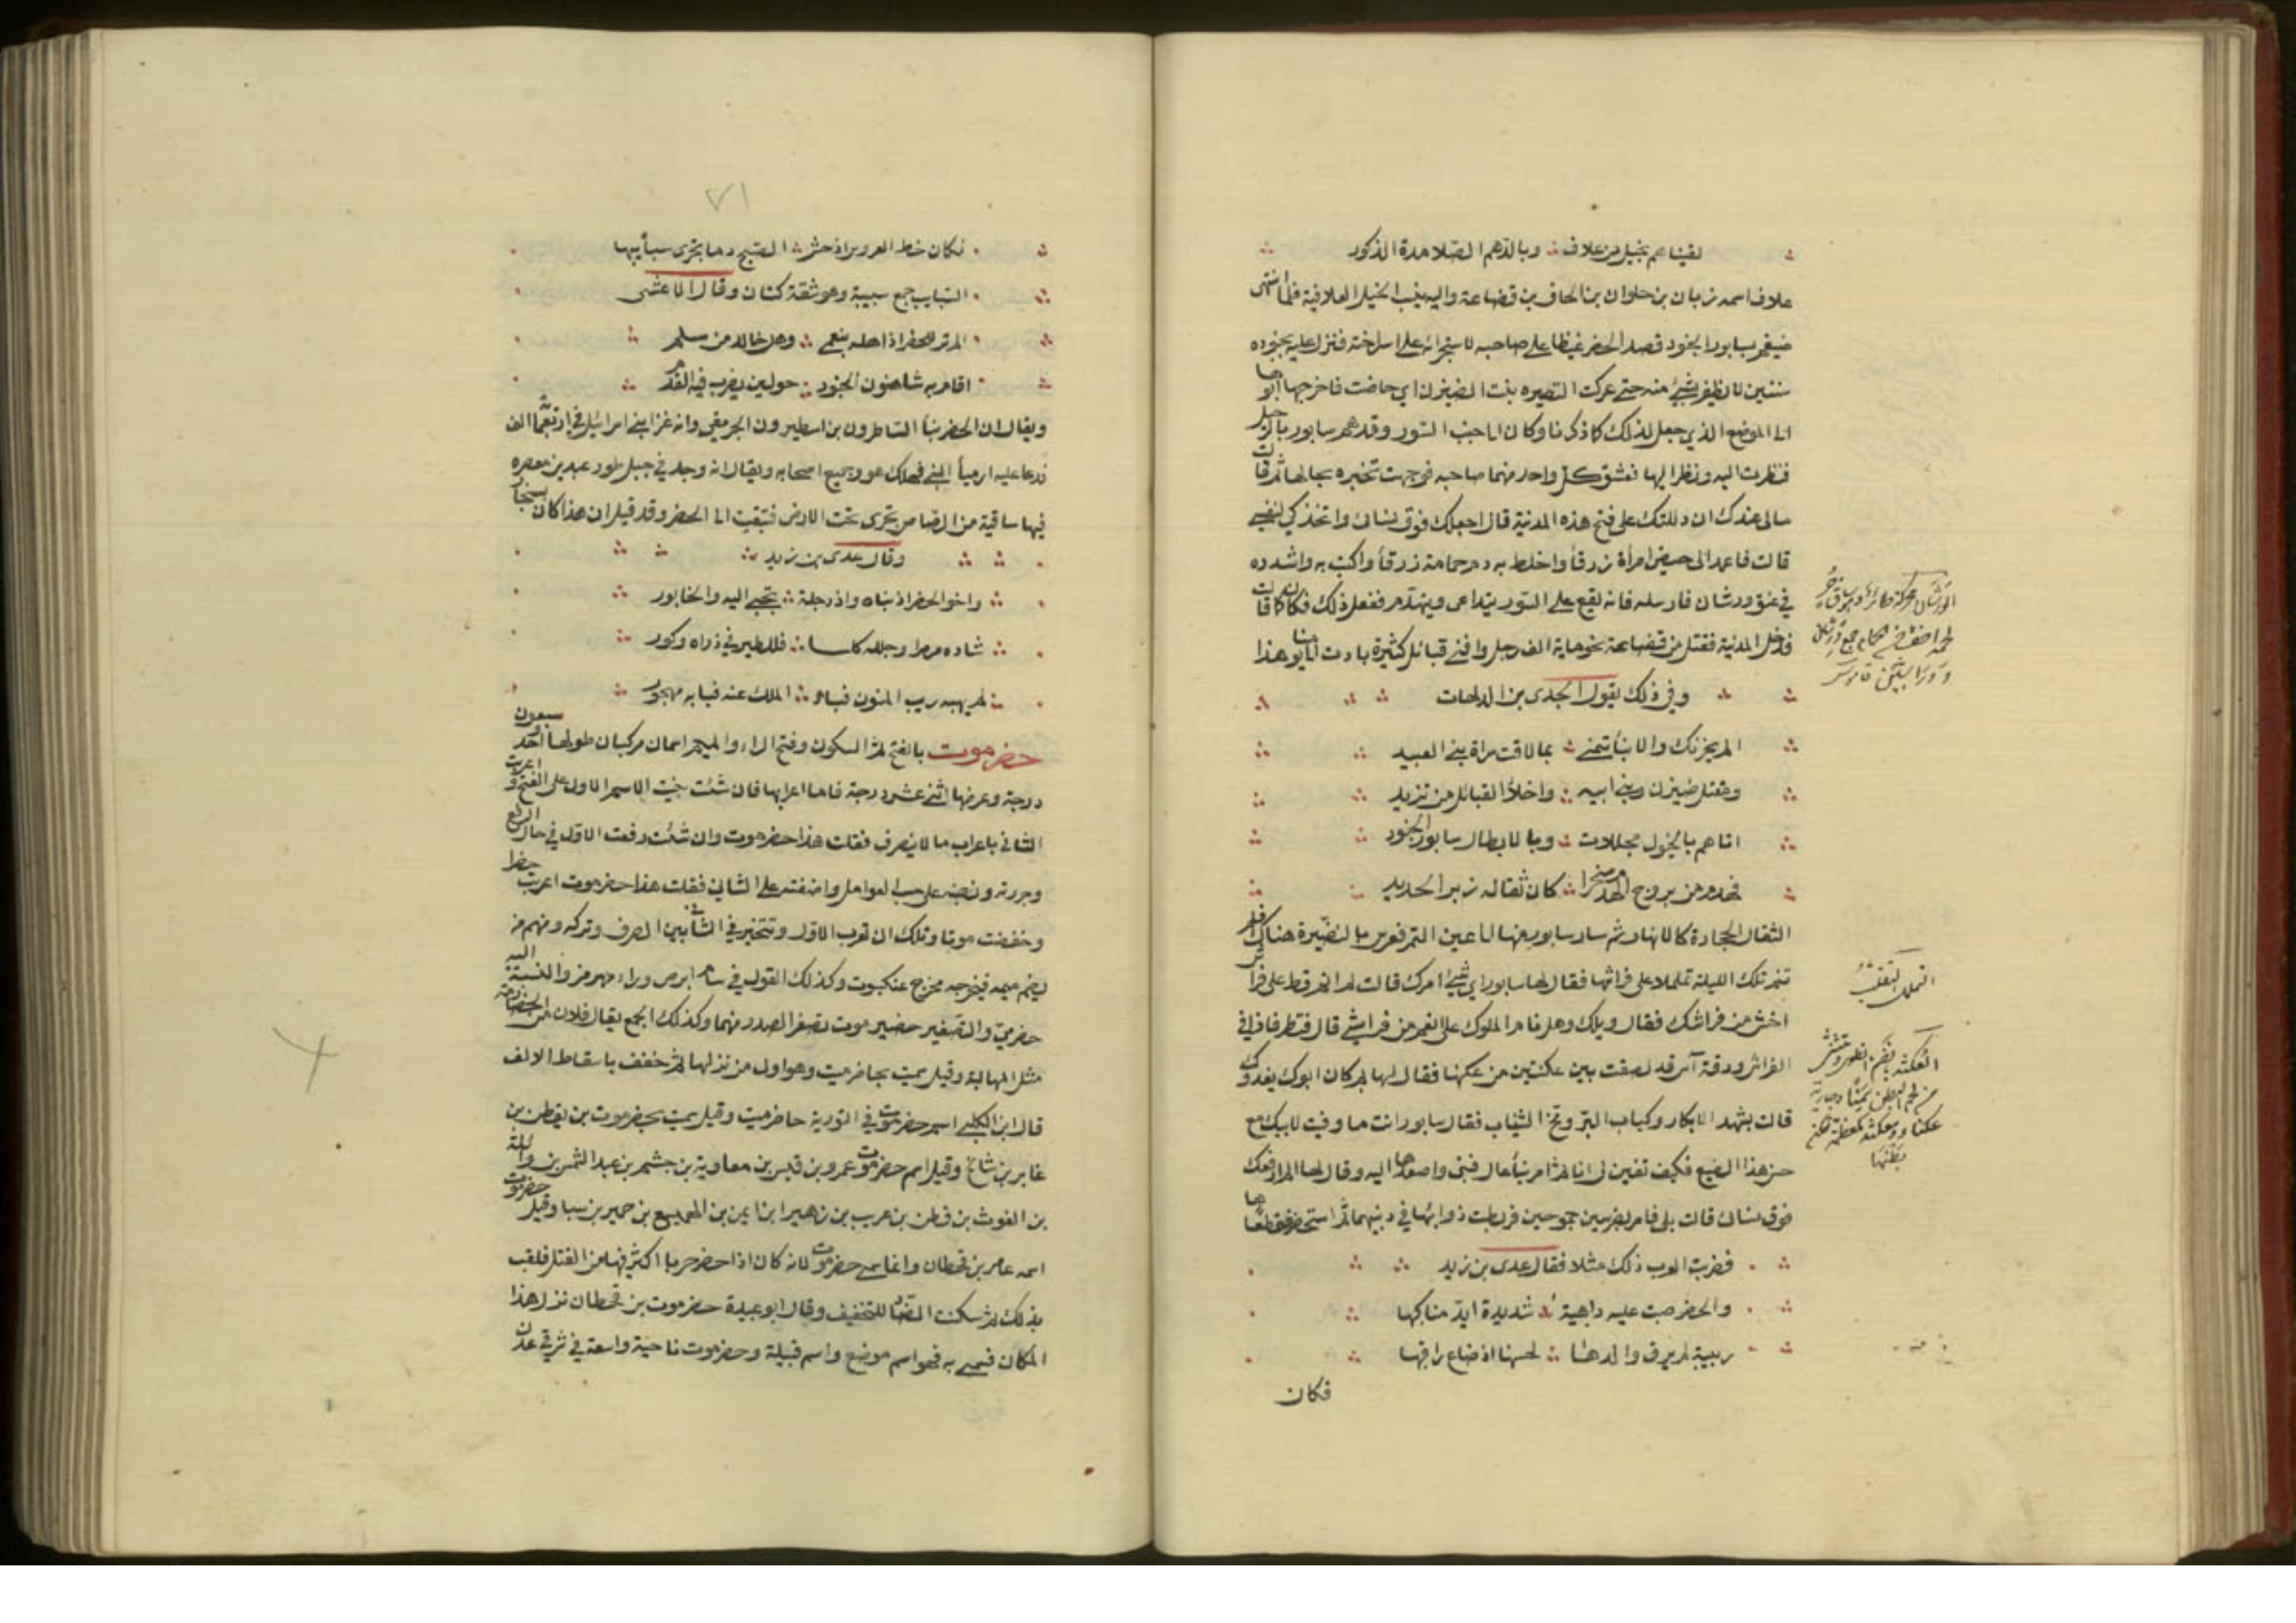 لقيناهم بخيل من علاف ∴ وبالدهم الصلادمة الذكور
علاف اسمه زبان بن حلوان بن الحاف بن قضاعة واليه ينسب الخيل العلافية فلما انتهى
ضيغم بسابور الجنود قصد الحضر غيظا على صاحبه لاستجرائه على اسر اخته فنزل عليه بجنوده
سنتين لا يظفر بشئ منه حتى عركت النضيره بنت الضيزن اي حاضت فاخرجها ابوها
الى الموضع الذي جعل لذلك كما ذكرنا وكان الى جنب السور وقد هم سابور بالرحيل
فنظرت اليه ونظر اليها فعشق كل واحد منهما صاحبه فوجهت تخبره بحالها ثم قالت
مالي عندك ان دللتك على فتح هذه المدينة قال اجعلك فوق نسائي واتخذك لنفسي
قالت فاعمد الى حيض امرأة زرقأ واخلط به دم حمامة زرقأ واكتب به واشدده
في عنق ورشان فارسله فانه يقع على السور فيتداعى وينهدم ففعل ذلك فكان كما قالت
فدخل المدينة فقتل من قضاعة نحو ماية الف رجل وافنى قبائل كثيرة بادت الى يومنا هذا
وفي ذلك يقول الجدى بن الدلهاث
الم يحزنك والانبأ تنمي ∴ بما لاقت سراة بني العبيد
ومقتل ضيزن وبني ابيه ∴ واخلاء القبائل من تزيد
اتاهم بالخيول مجللات ∴ وبالابطال سابور الجنود
فهدم من بروج الحضر صخرا ∴ كان ثقاله زبر الحديد
الثقال الحجارة كالافهار ثم سار سابور منها الى عين التمر فعرس بالنضيرة هناك فلم
تنم تلك الليلة تململا على فراشها فقال لها سابور اي شيء امرك قالت لم انم قط على فراش
اخشن من فراشك فقال ويلك وهل نام الملوك على انعم من فراشي قال فنظر فاذا في
الفراش ورقة آس قد لصقت بين عكنتين من عكنها فقال لها بم كان ابوك يغدوك
قالت بشهد الابكار ولباب البر ومخ الثنيات فقال سابور انت ما وفيت لابيك مع
حسن هذا الصنيع فكيف تفين لي انا ثم امر ببنأ عال فبنى واصعدها اليه وقال لها الم ارفعك
فوق نسائي قالت بلى فامر بفرسين جموحين فربطت ذوائبها في ذنبيهما ثم استحضرا فقطعاها
فضربت العرب ذلك مثلا فقال عدى بن زيد
والحضر صبت عليه داهية ∴ شديدة ايد مناكبها
ربيبة لم يوق والدها ∴ لحبها اذ ضاع راقبها
فكان
الورشان محركة طائر وهو ساق حر
لحمه اخف من الحمام جمع ورشان
ووراشين قاموس
التململ التقلب
العكنة بالضم
٧١
فكان حظ العروس اذ جشر ∴ الصبح دما يجرى سبائبها
السبايب جمع سبيبة وهو شقة كتان وقال الاعشى
الم تر للحضر اذ اهله بنعمى ∴ وهل خالد من سلم
اقام به شاهنون الجنود ∴ حولين يضرب فيه القدم
ويقال ان الحضر بنأ الساطرون بن اسطيرون الجرمقي وانه غزا بني اسرائيل في اربعماية الف
فدعا عليه ارميأ النبي فهلك هو وجميع اصحابه ويقال انه وجد في جبل طور عبدين معصره
فيها ساقية من الرصاص تجرى تحت الارض فتبعت الى الحضر وقد قيل ان هذا كان بسنجار
وقال عدى بن زيد
واخو الحضر اذ بناه واذ دجلة ∴ تجبى اليه والخابور
شاده مرمرا وجلله كلسا ∴ فللطير في ذراه وكور
لم يهبه ريب المنون فباد ∴ الملك عنه فبابه مهجور
حضرموت بالفتح ثم السكون وفتح الراء والميم اسمان مركبان طولها احد وسبعون
درجة وعرضها اثنى عشر درجة فاما اعرابها فان شئت بنيت الاسم الاول على الفتح واعربت
الثاني باعراب ما لا ينصرف فقلت هذا حضرموت وان شئت رفعت الاول في حال الرفع
وجررته ونصبته على حسب العوامل واضفته على الثاني فقلت هذا حضرموت اعربت حضرا
وخفضت موتا ولك ان تعرب الاول وتتخير في الثاني بين الصرف وتركه ومنهم من
يضم ميمه فيخرجه مخرج عنكبوت وكذلك القول في سام ابرص ورام هرمز والنسبة اليه
حضرمي والتصغير حضيرموت تصغر الصدر منهما وكذلك الجمع يقال فلان من الحضارمة
مثل المهالبة وقيل سميت بحاضرميت وهو اول من نزلها ثم خفف باسقاط الالف
قال ابن الكلبي اسم حضرموت في التورية حاضرميت وقيل سميت بحضرموت بن يقطن بن
عابر بن شالخ وقيل اسم حضرموت عمرو بن قيس بن معاوية بن جشم بن عبد الشمس بن وائلة
بن الغوث بن قطن بن عريب بن زهير ابن ايمن بن الهميسع بن حمير بن سبا وقيل حضرموت
اسمه عامر بن قحطان وانما سمى حضرموت لانه كان اذا حضر حربا اكثر فيها من القتل فلقب
بذلك ثم سكنت الضاد للتخفيف وقال ابو عبيدة حضرموت بن قحطان نزل هذا
المكان فسمى به فهو اسم موضع واسم قبيلة وحضرموت ناحية واسعة في شرقي عدن